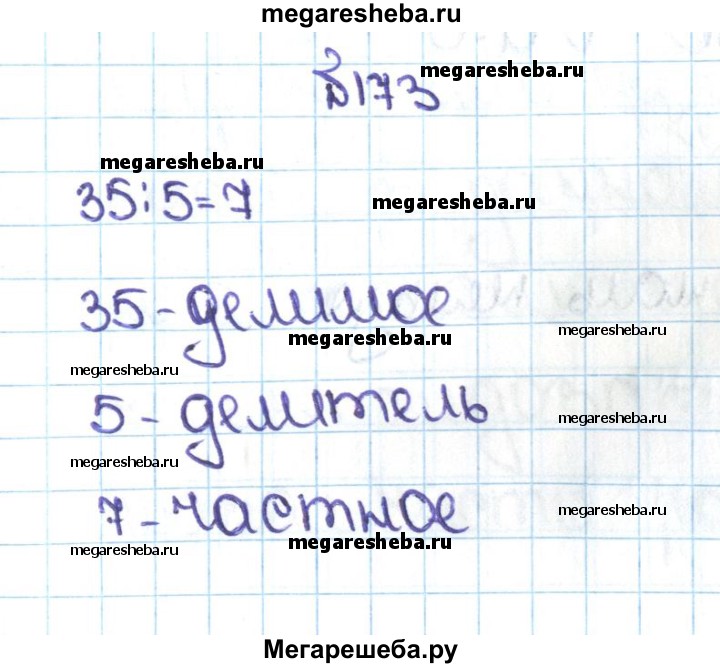 megaresheba.ru
№173
megaresheba.ru
megaresheba.ru
35:5=7
megaresheba.ru
35-делимое
megaresheba.ru
megaresheba.ru
megaresheba.ru
5-делитель
megaresheba.ru
megaresheba.ru
7-частное
megaresheba.ru
megaresheba.ru
megaresheba.ru
megaresheba.ru
Мегарешеба.ру